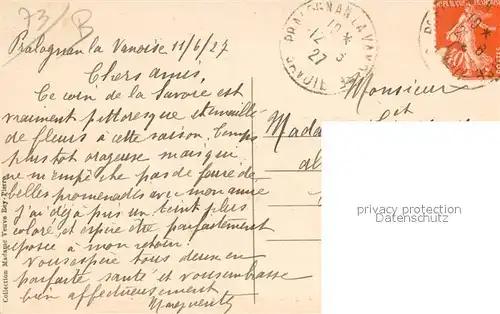 73/B
Pralognan la Vanoise 11/6/27
Chers amis,
Ce coin de la Savoie est
vraiment pittoresque et émaillé
de fleurs à cette saison. Temps
plutot orageux mais qui
ne m'empêche pas de faire de
belles promenades avec mon amie
J'ai déjà pris un teint plus
coloré, et espère être parfaitement
à mon retour.
Vous espère tous deux en
parfaite santé et vous embrasse
bien affectueusement
Marguerite
Collection Madame Veuve Rey-Pierre
PRALOGNAN-LA-VANOISE
12 - 6
27
SAVOIE
Monsieur
et
Mada
al
privacy protection
AKPool.de
privacy protection
AKPool.de